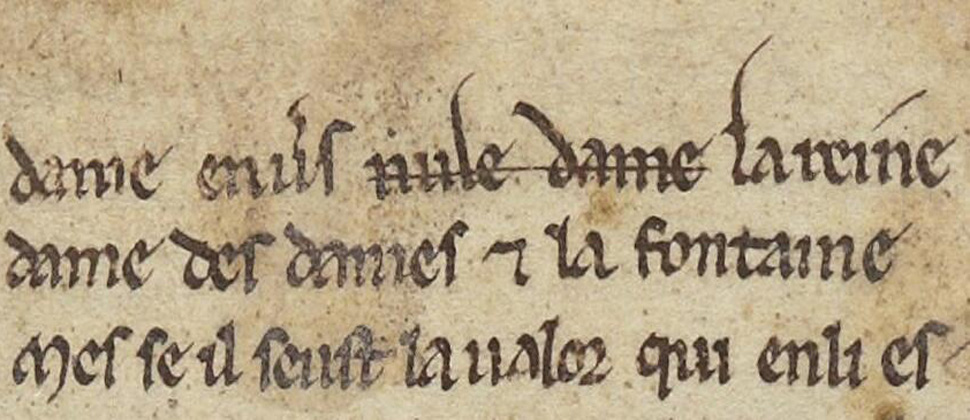 dame enu's nule dame la reine
dame des dames ⁊ la fontaine
Mes se il seust la ualor qui en li es